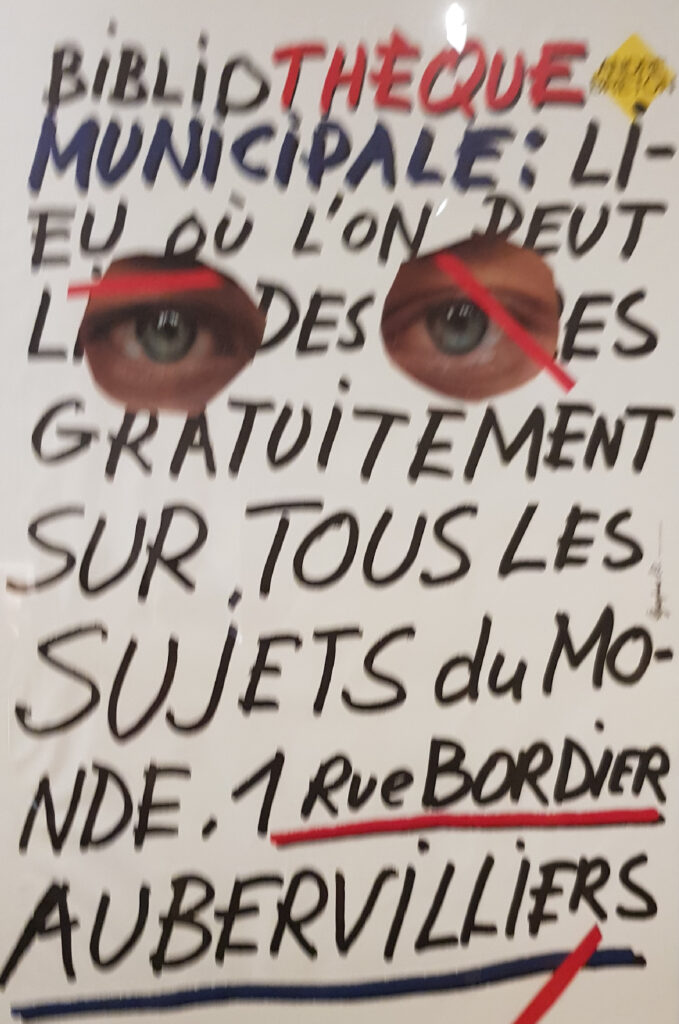 BiBLiOTHÈQUE
MUNICIPALE: Li-
EU OÙ L'ON PEUT
DES
GRATUiTEMENT
SUR TOUS LES
SUJETS du MO-
NDE. 1 Rue BORDiER
AUBERViLLiERS